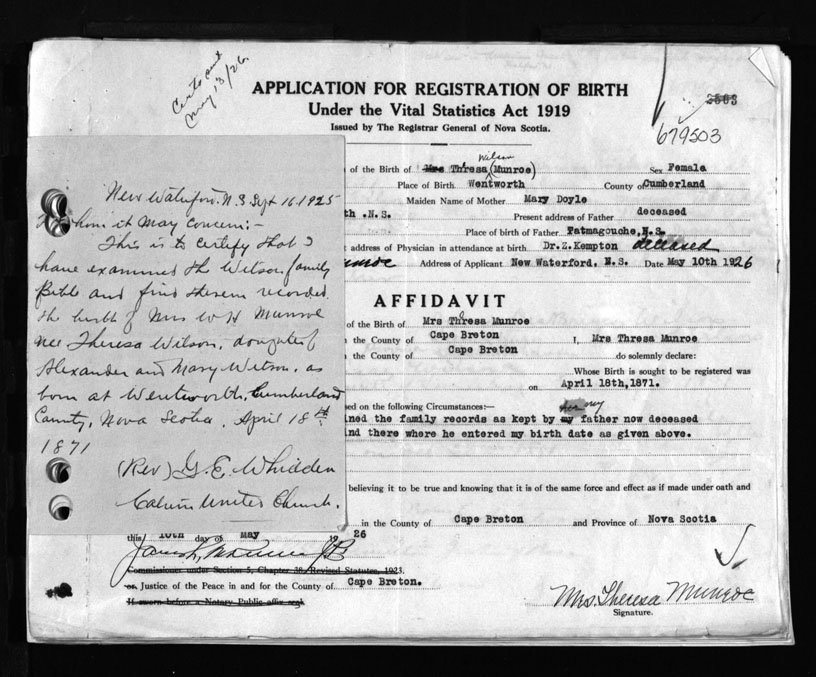 Certs sent
May 13/26.
APPLICATION FOR REGISTRATION OF BIRTH
Under the Vital Statistics Act 1919
Issued by The Registrar General of Nova Scotia.
3503
679503
New Waterford. N.S Sept 16. 1925
To whom it May concern:-
This is to certify that I
have examined the Wilson family
Bible and find therein recorded
the birth of Mrs W H Munroe
nee Theresa Wilson, daughter of
Alexander and Mary Wilson, as
born at Wentworth, Cumberland
County, Nova Scotia. April 18th
1871
(Rev) G. E. Whidden
Calvin United Church.
Wilson
of the Birth of Mrs Thresa (Munroe) Sex Female
Place of Birth Wentworth County of Cumberland
Maiden Name of Mother Mary Doyle
th .N.S. Present address of Father deceased
Place of birth of Father Tatmagouche, N.S.
t address of Physician in attendance at birth Dr. Z. Kempton deceased
unroe Address of Applicant New Waterford, N.S. Date May 10th 1926
AFFIDAVIT
of the Birth of Mrs Thresa Munroe
n the County of Cape Breton I, Mrs Thresa Munroe
n the County of Cape Breton do solemnly declare:
Whose Birth is sought to be registered was
on April 18th, 1871.
sed on the following Circumstances:— my
ined the family records as kept by my father now deceased
ind there where he entered my birth date as given above.
believing it to be true and knowing that it is of the same force and effect as if made under oath and
in the County of Cape Breton and Province of Nova Scotia
this 10th day of May 1926
JP
Commissions under Section 5, Chapter 38, Revised Statutes, 1923.
or Justice of the Peace in and for the County of Cape Breton.
If sworn before a Notary Public affix seal
Mrs. Theresa Munroe
Signature.